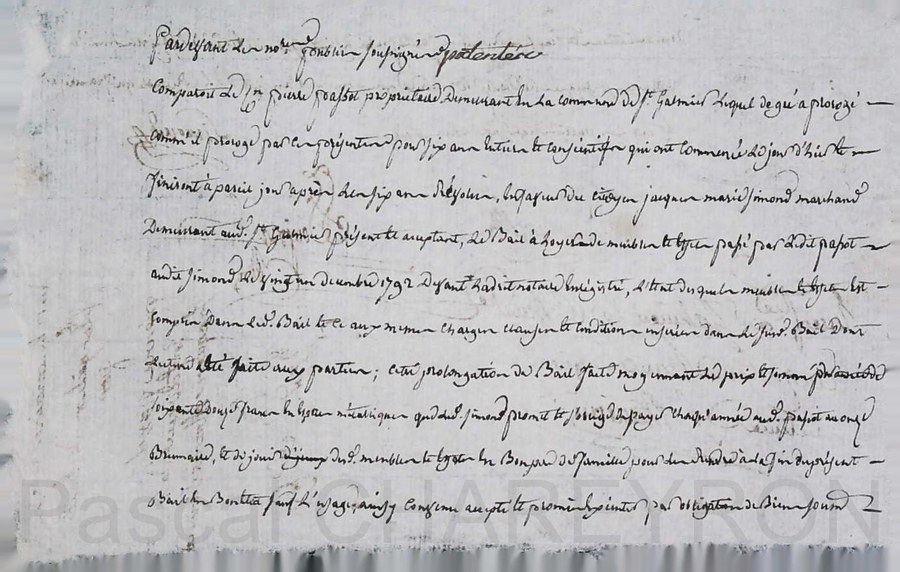 Pardevant Les no.res publics soussignés patentés
Comparoit Le Cn pierre passot propriétaire Demeurant en La commune de St. Galmier Lequel de gré a prorogé
comm'il proroge par Ces présentes pour six ans Entiers et Consécutifs qui ont Commencés Le jour d'hier et
finiront à pareil jour après Les six ans Révolus, En faveur du Citoyen jacques marie simond marchand
Demeurant aud. St. Galmier présent et acceptant, Le Bail à Loyer de meubles et effets passé par Ledit passot
audit simond Le vingt un decembre 1792 Devant Ledit notaire Enregistré, L'état desquels meubles et effets Est
Compris Dans Led. Bail et Ce aux memes charges clauses et Conditions inserées dans Le susd. Bail Dont
Lecture a été faite aux parties; Cette prolongation de Bail faite moyennant Le prix et somme de
soixante douze francs En Espèces métalliques que led. simond promet et s'oblige de payer chaque année aud. passot au onze
Brumaire, et de jouir desd. meubles et effets En Bon père de famille pour Les Rendre à La fin du présent
Bail En Bon état sauf L'usage, ainsy Convenu accepté et promis Exécuter par obligation de Biens soumis
Pascal CHAREYRON